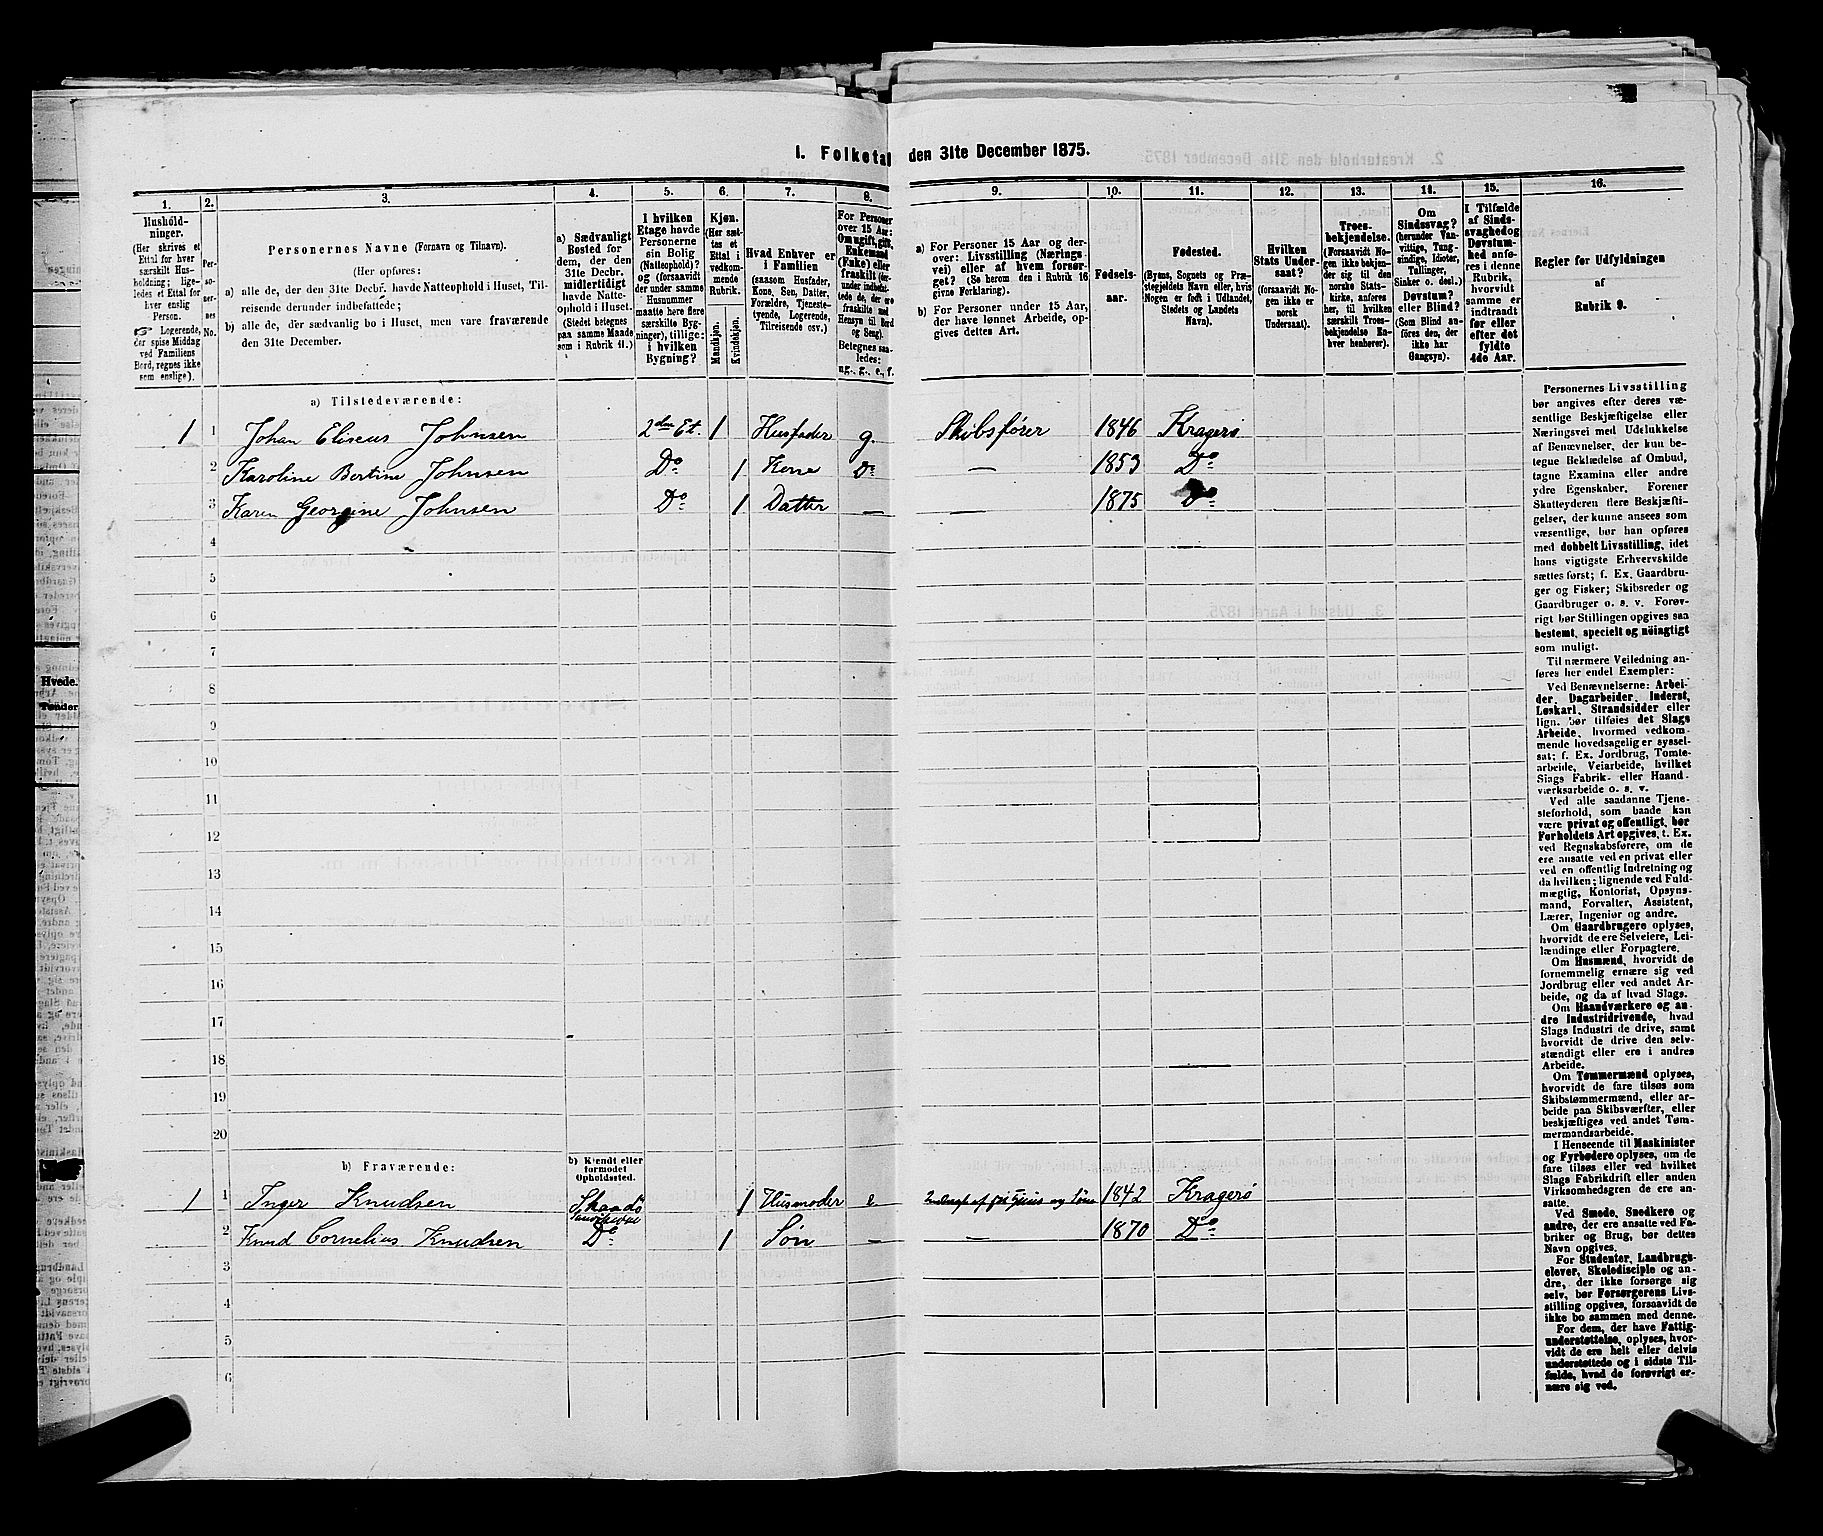 1. Folketal den 31te December 1875.
1.
2.
3.
4.
5.
6.
7.
8.
9.
10.
11.
12.
13.
14.
15.
16.
Husholdninger.
(Her skrives et
Ettal for hver
særskilt Husholdning; ligeledes et Ettal for
hver enslig
Person.
Logerende,
der spise Middag
ved Familiens
Bord, regnes ikke
som enslige).
Personernes No.
Personernes Navne (Fornavn og Tilnavn).
(Her opføres:
a) alle de, der den 31te Decbr. havde Natteophold i Huset, Tilreisende derunder indbefattede;
b) alle de, der sædvanlig bo i Huset, men vare fraværende
den 31te December.
a) Sædvanligt
Bosted for
dem, der den
31te Decbr.
midlertidigt
havde Natteophold i Huset.
(Stedet betegnes
paa samme Maade
som i Rubrik 11.)
I hvilken
Etage havde
Personerne
sin Bolig
(Natteophold)?
og (forsaavidt
der under samme
Husnummer
maatte høre flere
særskilte Bygninger), tillige:
i hvilken
Bygning?
Kjøn.
(Her sættes et
Ettal i
vedkommende
Rubrik.
Mandskjøn.
Kvindekjøn.
Hvad Enhver er
i Familien
(saasom Husfader,
Kone, Søn, Datter,
Forældre, Tjenestetyende, Logerende,
Tilreisende osv.)
For Personer
over 15 Aar:
Om ugift, gift,
Enkemand
(Enke) eller
fraskilt (derunder indbefattede de, der ere
fraskilte med
Hensyn til Bord
og Seng).
Betegnes saaledes:
ug., g., e., f.
a) For Personer 15 Aar og derover: Livsstilling (Næringsvei) eller af hvem forsørget? (Se herom den i Rubrik 16
givne Forklaring).
b) For Personer under 15 Aar,
der have lønnet Arbeide, opgives dettes Art.
Fødselsaar.
Fødested.
(Byens, Sognets og Præstegjeldets Navn eller, hvis
Nogen er født i Udlandet,
Stedets og Landets
Navn).
Hvilken
Stats Undersaat?
(forsaavidt
Nogen ikke er
norsk
Undersaat).
Troesbekjendelse.
(Forsaavidt Nogen ikke bekjender sig til den
norske Statskirke, anføres
her, til hvilken
særskilt Troesbekjendelse Enhver henhører).
Om
Sindssvag?
(herunder Vanvittige, Tungsindige, Idioter,
Tullinger,
Sinker o. desl.)
Døvstum?
eller Blind?
(Som Blind anføres den, der
ikke har
Gangsyn).
I Tilfælde
af Sindssvaghed og
Døvstumhed anføres i denne
Rubrik,
hvorvidt
samme er
indtraadt
før eller
efter det
fyldte
4de Aar.
Regler før Udfyldningen
af
Rubrik 9.
a) Tilstedeværende:
1 1 Johan Eliseus Johnsen 2den Et. 1 Husfader g. Skibsfører 1846 Kragerø
2 Karoline Bertine Johnsen Do 1 Kone Do — 1853 Do
3 Karen Georgine Johnsen Do 1 Datter — — 1875 Do
4
5
6
7
8
9
10
11
12
13
14
15
16
17
18
19
20
b) Fraværende:
b) Kjendt eller
formodet
Opholdssted.
1 1 Inger Knudsen Skaadø 1 Husmoder e 1842 Kragerø
2 Knud Cornelius Knudsen Do 1 Søn — — 1870 Do
3
4
5
6
Personernes Livsstilling
bør angives efter deres væsentlige Beskjæftigelse eller
Næringsvei med Udelukkelse
af Benævnelser, der kun betegne Beklædelse af Ombud,
tagne Examina eller andre
ydre Egenskaber. Forener
Skatteyderen flere Beskjæftigelser, der kunne ansees som
væsentlige, bør han opføres
med dobbelt Livsstilling, idet
hans vigtigste Erhvervskilde
sættes først; f. Ex. Gaardbruger og Fisker; Skibsreder og
Gaardbruger o. s. v. Forøvrigt bør Stillingen opgives saa
bestemt, specielt og nöiagtigt
som muligt.
Til nærmere Veiledning anføres her endel Exempler:
Ved Benævnelserne: Arbeider, Dagarbeider, Inderst,
Løskarl, Strandsidder eller
lign. bør tilføies det Slags
Arbeide, hvormed vedkommende hovedsagelig er sysselsat; f. Ex. Jordbrug, Tomtearbeide, Veiarbeide, hvilket
Slags Fabrik- eller Haandværksarbeide o. s. v.
Ved alle saadanne Tjenesteforhold, som baade kan
være privat og offentligt, bør
Forholdets Art opgives, t. Ex.
ved Regnskabsførere, om de
ere ansatte ved en privat eller
ved en offentlig Indretning og
da hvilken; lignende ved Fuldmægtig, Kontorist, Opsynsmand, Forvalter, Assistent,
Lærer, Ingeniør og andre.
Om Gaardbrugere oplyses,
hvorvidt de ere Selveiere, Leilændinge eller Forpagtere.
Om Husmænd, hvorvidt de
fornemmelig ernære sig ved
Jordbrug eller ved andet Arbeide, og da af hvad Slags.
Om Haandværkere og andre Industridrivende, hvad
Slags Industri de drive, samt
hvorvidt de drive den selvstændigt eller ere i andres
Arbeide.
Om Tømmermænd oplyses,
hvorvidt de fare tilsøs som
Skibstømmermænd, eller arbeide paa Skibsværfter, eller
beskjæftiges ved andet Tømmermandsarbeide.
I Henseende til Maskinister
og Fyrbødere oplyses, om de
fare tilsøs eller ved hvilket
Slags Fabrikdrift eller anden
Virksomhedsgren de ere ansatte.
Ved Smede, Snedkere og
andre, der ere ansatte ved Fabriker og Brug, bør dettes
Navn opgives.
For Studenter, Landbrugselever, Skoledisciple og andre, der ikke forsørge sig
selv, bør Forsørgerens Livsstilling opgives, forsaavidt de
ikke bo sammen med denne.
For dem, der have Fattigunderstøttelse, oplyses, hvorvidt de ere helt eller delvis
understøttede og i sidste Tilfælde, hvad de forøvrigt ernære sig ved.
Hvede.
Tønder